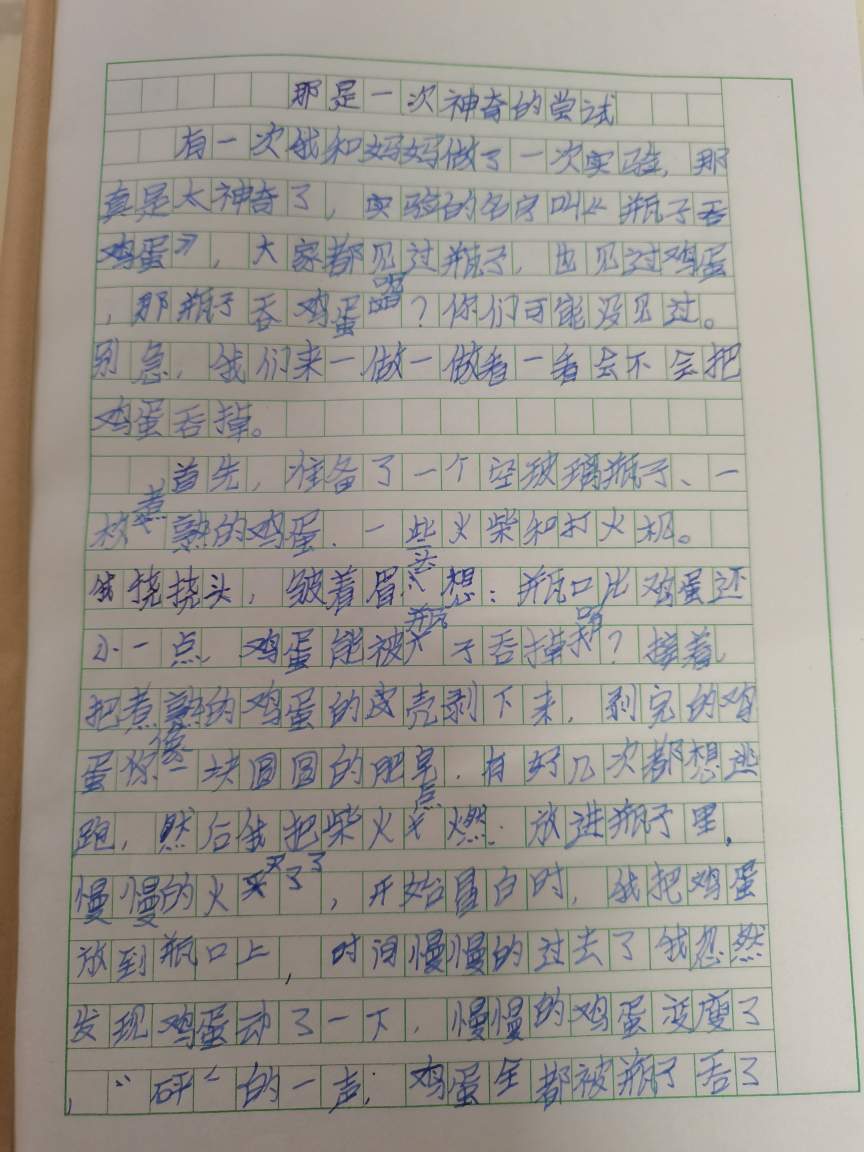 那是一次神奇的尝试
有一次我和妈妈做了一次实验，那
真是太神奇了，实验的名字叫《瓶子吞
鸡蛋》，大家都见过瓶子，也见过鸡蛋
，那瓶子吞鸡蛋呢？你们可能没见过。
别急，我们来一做一做看一看会不会把
鸡蛋吞掉。
首先，准备了一个空玻璃瓶子、一
枚煮熟的鸡蛋、一些火柴和打火机。
我挠挠头，皱着眉头想：瓶口比鸡蛋还
小一点，鸡蛋能被瓶子吞掉吗？接着，
把煮熟的鸡蛋的皮壳剥下来，剥完的鸡
蛋像一块圆圆的肥皂，有好几次都想逃
跑，然后我把柴火点燃，放进瓶子里，
慢慢的火灭了，开始冒白时，我把鸡蛋
放到瓶口上，时间慢慢的过去了我忽然
发现鸡蛋动了一下，慢慢的鸡蛋变了
，“砰”的一声，鸡蛋全都被瓶子吞了